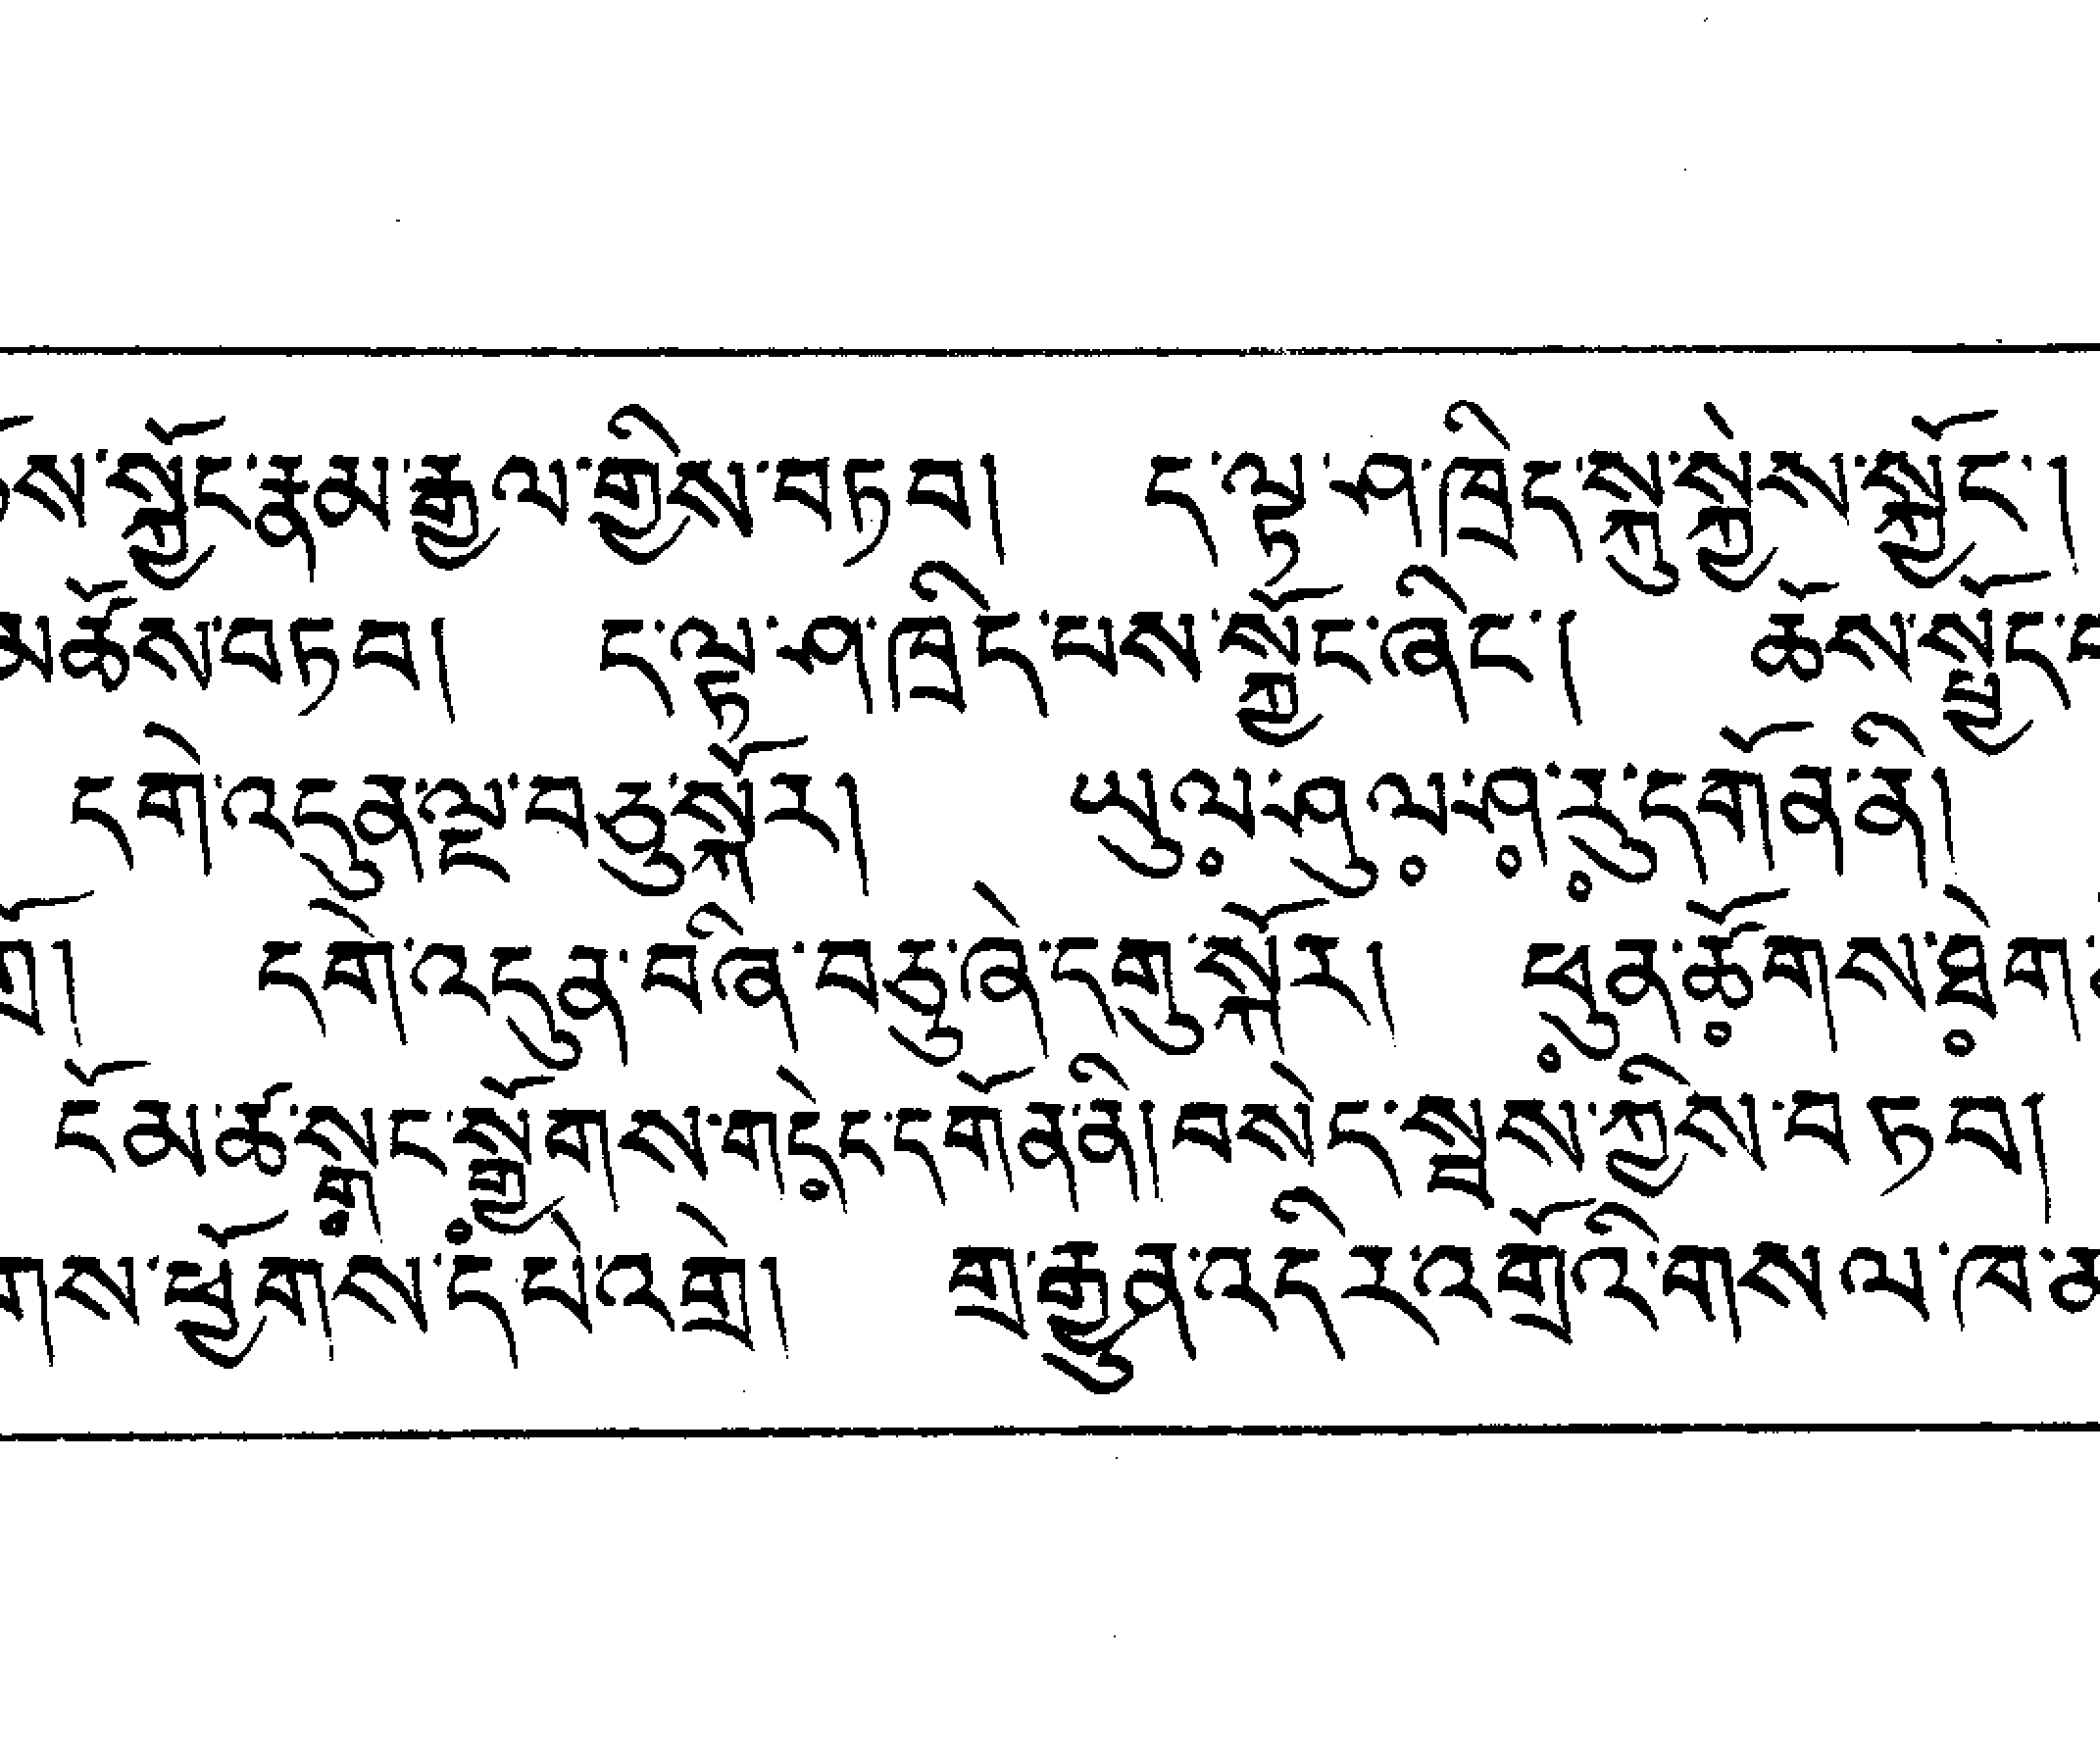 ཆོས་སྐྱོང་རྣམ་རྒྱལ་གྱིས་བཏབ། ད་ལྟ་ཤ་ཁྲིད་སྐུ་སྐྱེས་སྐྱོང་།
མཚོས་བཏབ། ད་ལྟ་ཤ་ཁྲིད་པས་སྐྱོང་ཞིང་། ཆོས་སྤྱོད་
དགེ་འདུན་ལྔ་བཅུ་སྐོར། ཡུལ༷་ཤུལ༷་ཤ༷་རུ༷་དགོན་ནི།
དགེ་འདུན་བཞི་བཅུ་ཞེ་དགུ་སྐོར། ཕུ༷ན་ཚོ༷གས་ཐེ༷ག་
ངོམ་ཚ་སྒ༷ང་སྒྱོ༷གས་གདེ༷ང་དགོན་ནི། བསེང་སྤྲས་ཀྱིས་བཏབ།
གས་ཕྱོགས་དཔེ་འགྲེ། གྲ་རྒྱུན་འདིར་འགྲོའི་གསལ་ཁ་མ